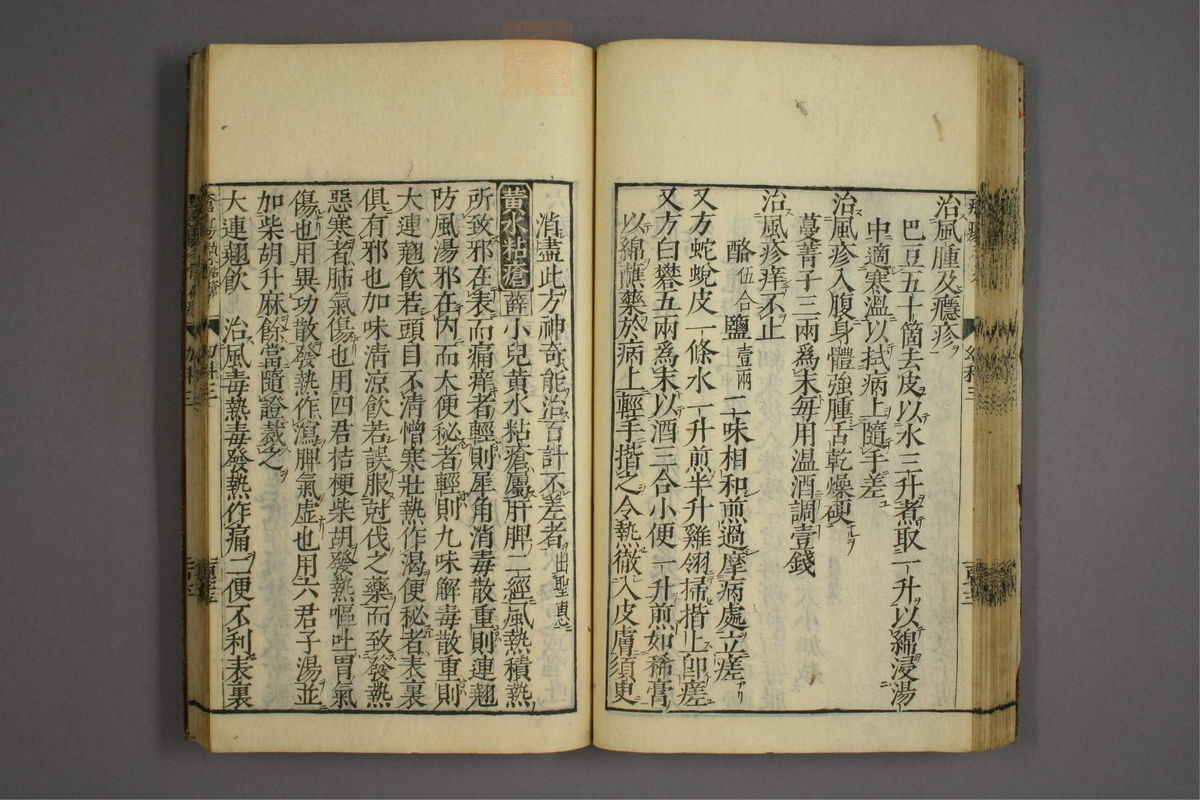 治風腫及癮疹
巴豆五十箇去皮以水三升煮取一升以綿浸湯
中適寒溫以拭病上隨手差
治風疹入腹身體強腫舌乾燥硬
蔓菁子三兩爲末每用温酒調壹錢
治風疹痒不止
酪伍合鹽壹兩二味相和煎過摩病處立瘥
又方蛇蛻皮一條水一升煎半升雞翎掃揩上卽瘥
又方白礬五兩爲末以酒三合小便一升煎如稀膏
以綿蘸藥於病上輕手揩之令熱徹入皮膚須臾
消盡此方神奇能治百計不差者出聖惠
黄水粘瘡薛小兒黄水粘瘡屬肝脾二經風熱積熱
所致邪在表而痛痒者輕則犀角消毒散重則連翹
防風湯邪在内而大便秘者輕則九味解毒散重則
大連翹飲若頭目不清憎寒壯熱作渴便秘者表裏
俱有邪也加味清涼飲若誤服尅伐之藥而致發熱
惡寒者肺氣傷也用四君桔梗柴胡發熱嘔吐胃氣
傷也用異功散發熱作瀉脾氣虚也用六君子湯並
如柴胡升麻餘當隨證裁之
大連翹飲 治風毒熱毒發熱作痛二便不利表裏